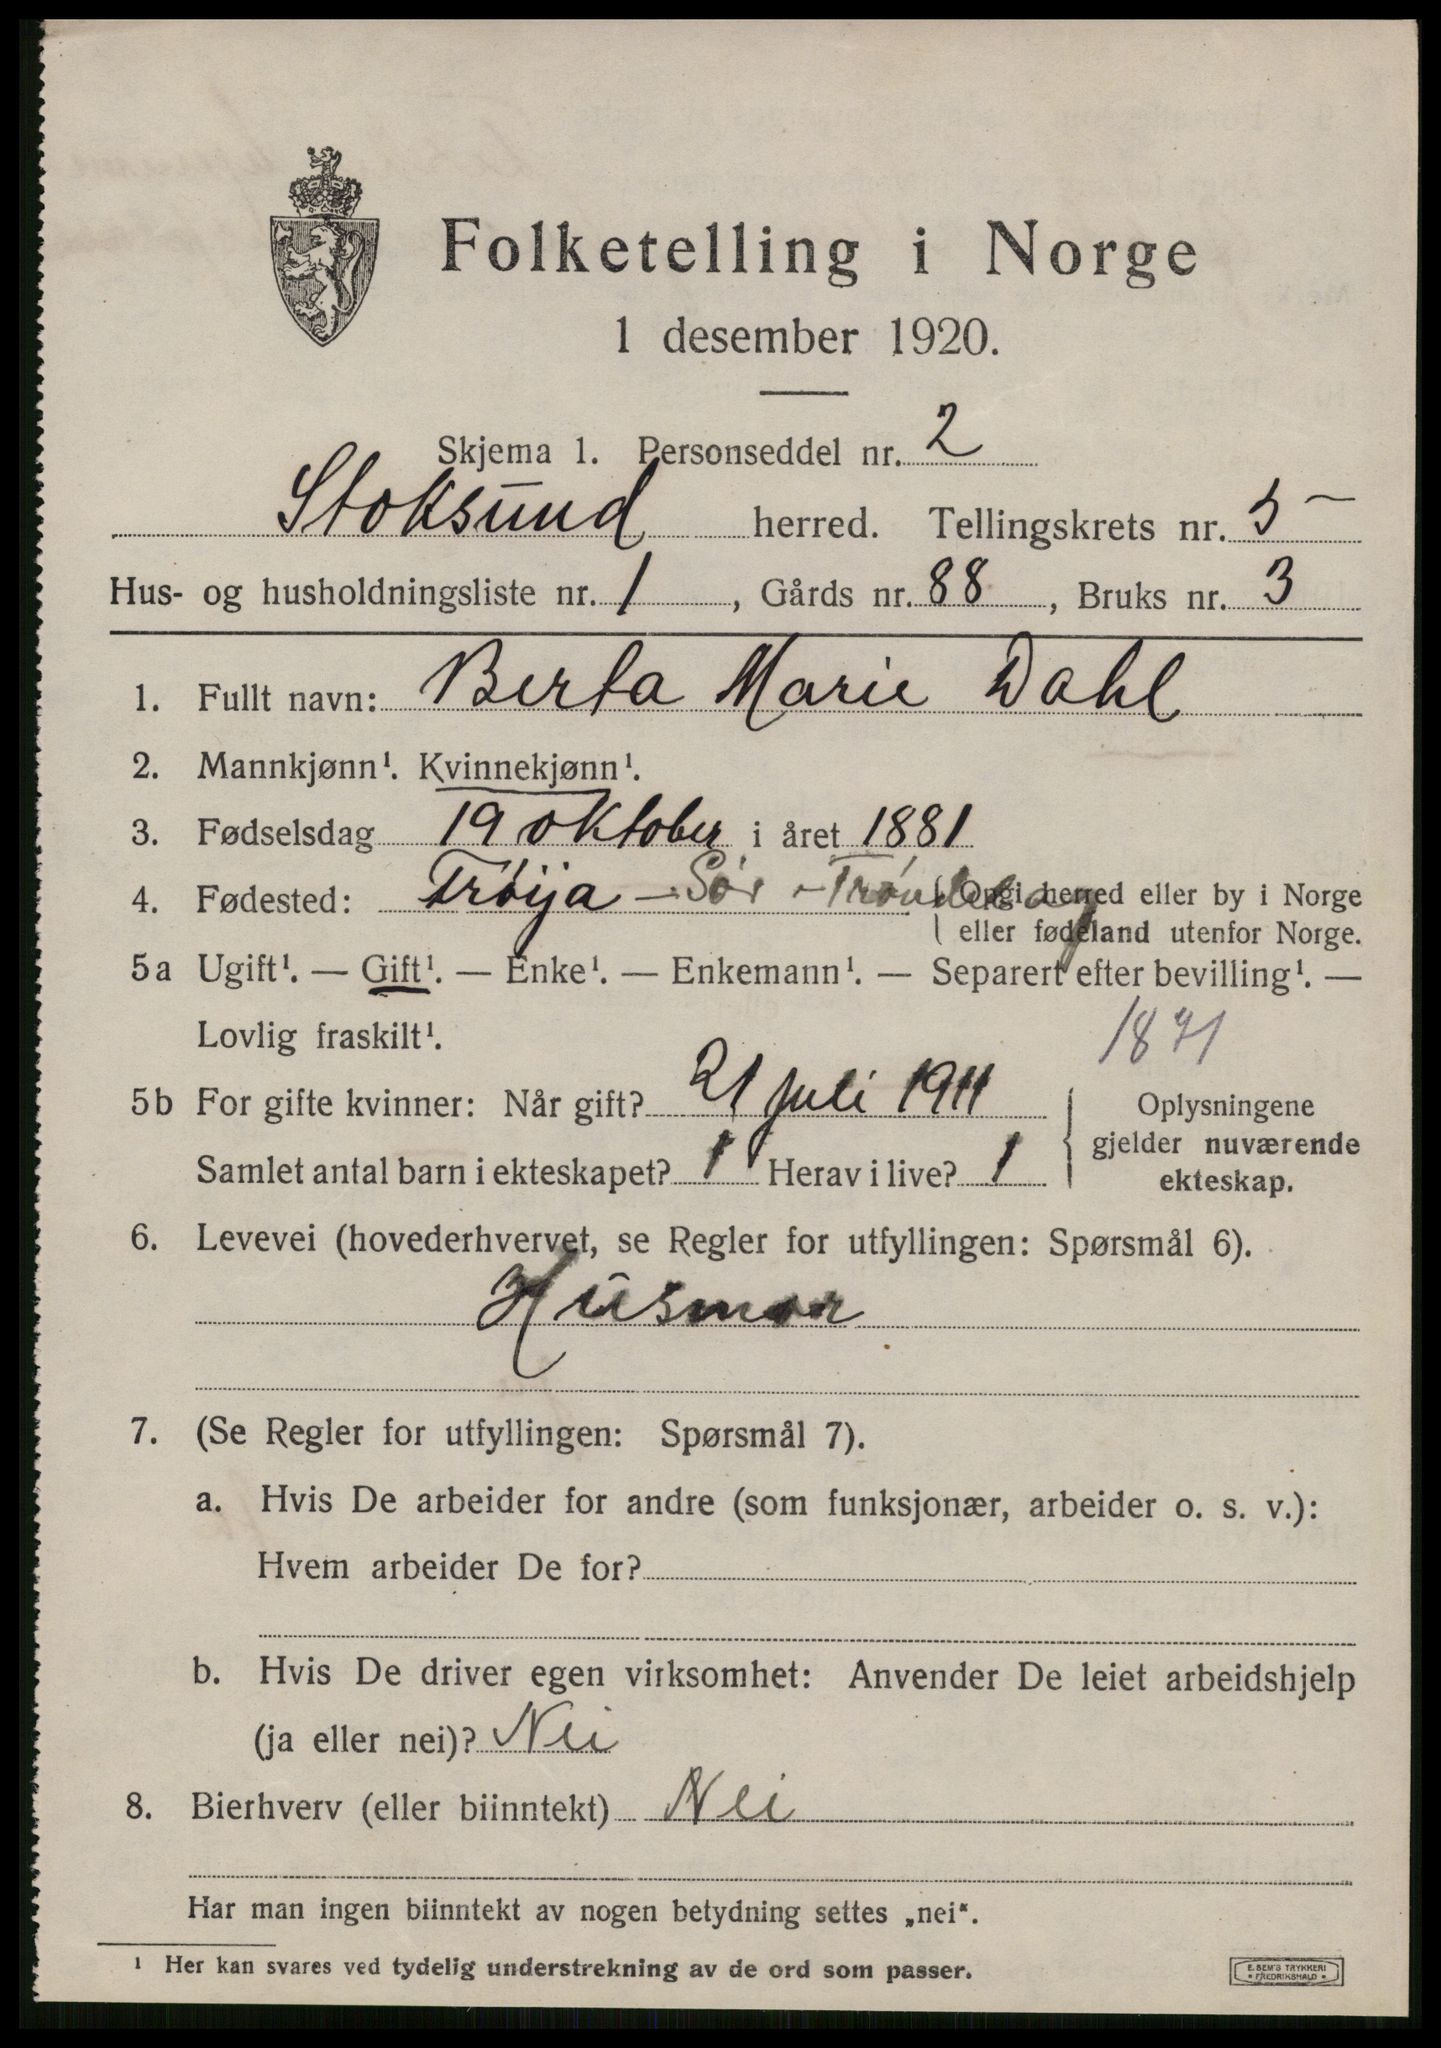 Folketelling i Norge
1 desember 1920.
Skjema 1. Personseddel nr. 2
Stoksund herred. Tellingskrets nr. 5
Hus- og husholdningsliste nr. 1, Gårds nr. 88, Bruks nr. 3
1. Fullt navn: Berta Marie Dahl
2. Mannkjønn¹. Kvinnekjønn¹.
3. Fødselsdag 19 oktober i året 1881
4. Fødested: Fröija - Sör - Tröndelag { Opgi herred eller by i Norge
eller fødeland utenfor Norge.
5a Ugift¹. — Gift¹. — Enke¹. — Enkemann¹. — Separert efter bevilling¹. —
Lovlig fraskilt¹.
5b For gifte kvinner: Når gift? 21 juli 1911
Samlet antal barn i ekteskapet? 1 Herav i live? 1
Oplysningene
gjelder nuværende
ekteskap.
6. Levevei (hovederhvervet, se Regler for utfyllingen: Spørsmål 6).
Husmor
7. (Se Regler for utfyllingen: Spørsmål 7).
a. Hvis De arbeider for andre (som funksjonær, arbeider o. s. v.):
Hvem arbeider De for?
b. Hvis De driver egen virksomhet: Anvender De leiet arbeidshjelp
(ja eller nei)? Nei
8. Bierhverv (eller biinntekt) Nei
Har man ingen biinntekt av nogen betydning settes „nei".
¹ Her kan svares ved tydelig understrekning av de ord som passer.
E. SEM'S TRYKKERI
• FREDRIKSHALD •